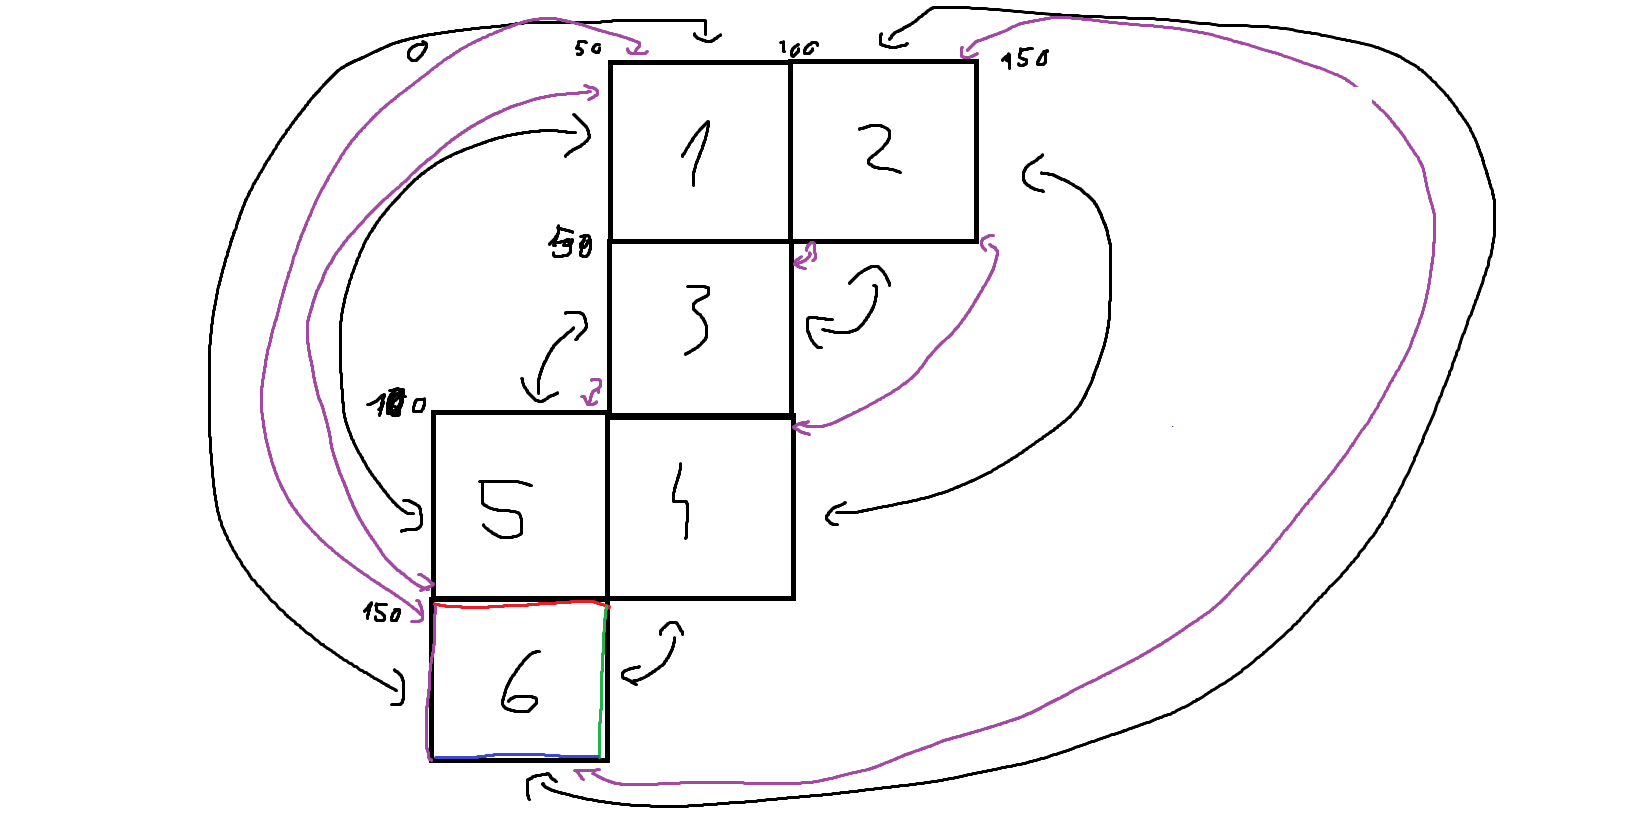 0 50 100 150
1 2
50
3
0
5 4
150
6